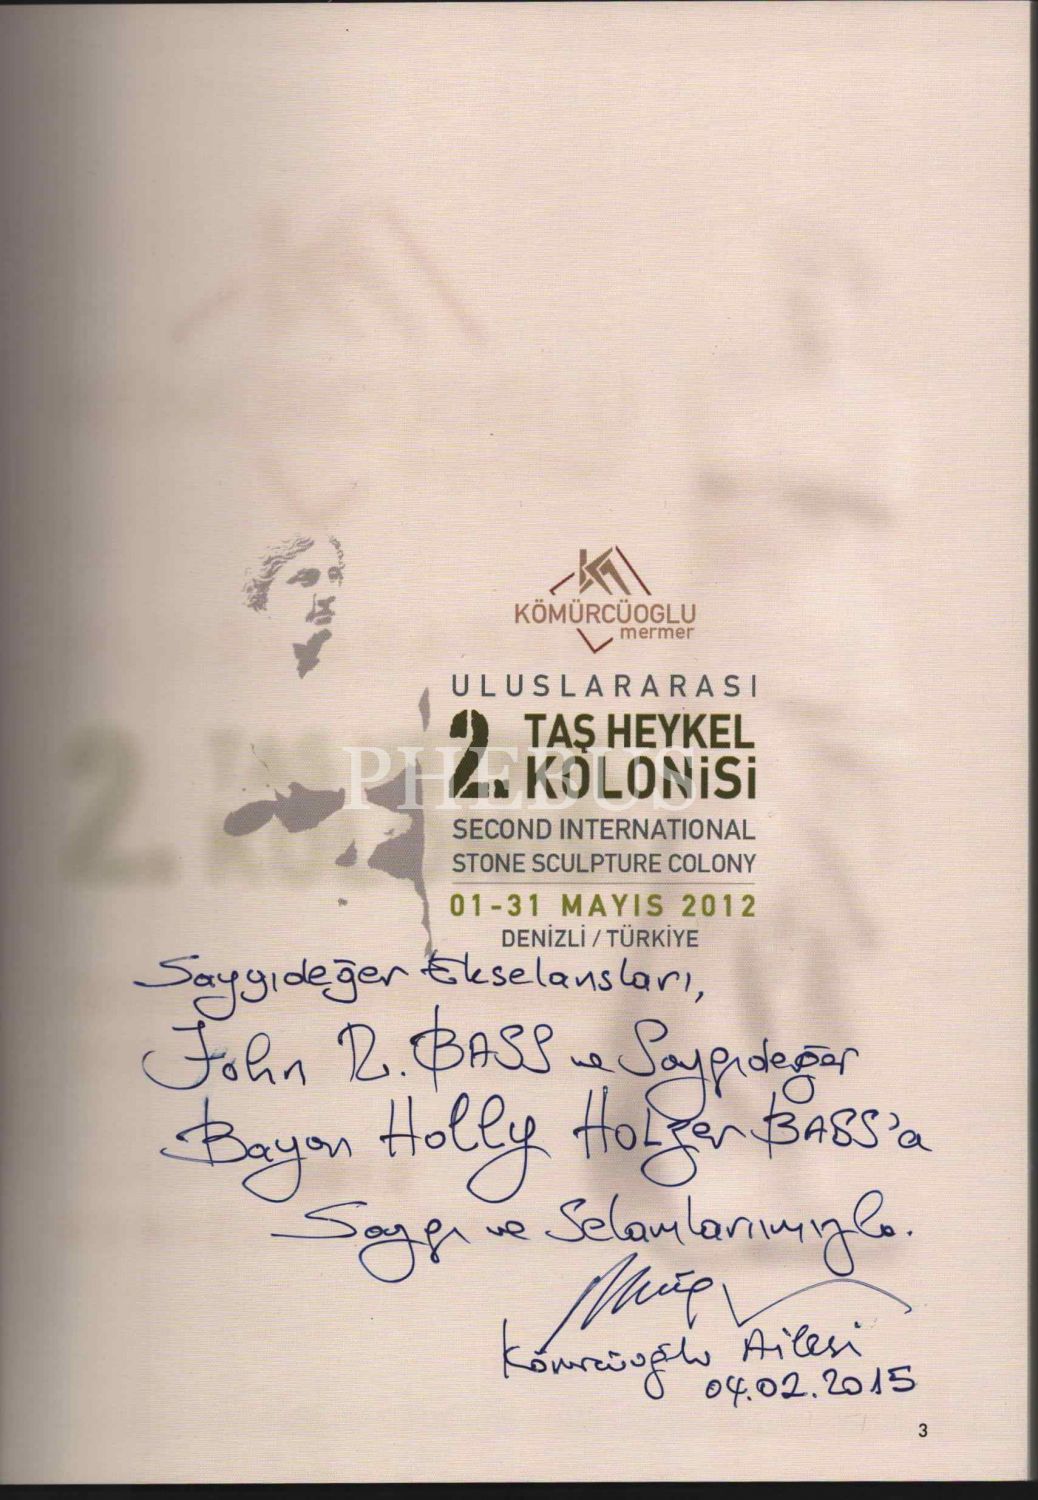 KÖMÜRCÜOGLU
mermer
ULUSLARARASI
2. TAŞ HEYKEL
KOLONiSi
PHEBUS
SECOND INTERNATIONAL
STONE SCULPTURE COLONY
01-31 MAYIS 2012
DENİZLİ / TÜRKİYE
Saygıdeğer Ekselansları,
John R. BASS ve Saygıdeğer
Bayan Holly Holzer BASS'a
Saygı ve Selamlarımızla.
Kömürcüoğlu Ailesi
04.02.2015
3